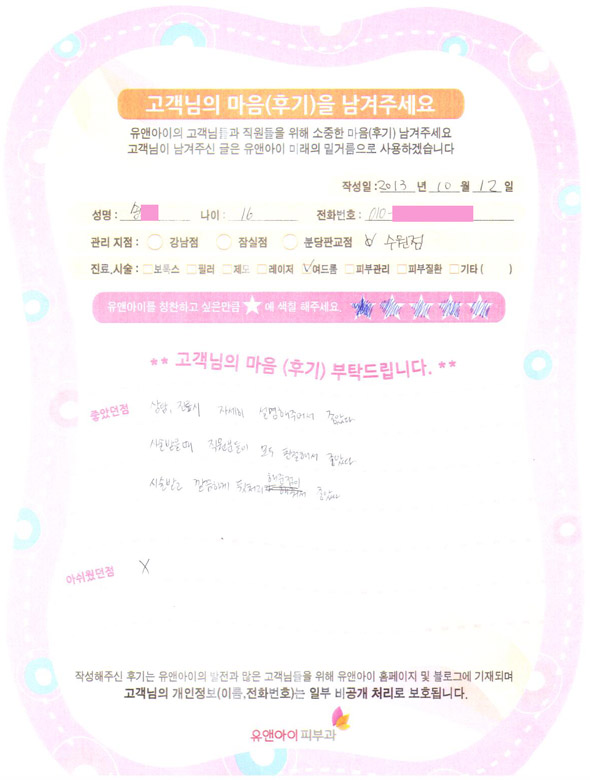 고객님의 마음(후기)을 남겨주세요
유앤아이의 고객님들과 직원들을 위해 소중한 마음(후기) 남겨주세요
고객님이 남겨주신 글은 유앤아이 미래의 밑거름으로 사용하겠습니다
작성일 : 2013 년 10 월 12 일
성명 : 송 나이 : 16 전화번호 : 010-
관리 지점 : 강남점 잠실점 분당판교점 수원점
진료,시술 : 보톡스 필러 제모 레이저 여드름 피부관리 피부질환 기타 ( )
유앤아이를 칭찬하고 싶은만큼 ★에 색칠 해주세요.
** 고객님의 마음 (후기) 부탁드립니다. **
좋았던점 상담, 진료시 자세히 설명해주셔서 좋았다
시술받을때 직원분들이 모두 친절해서 좋았다
시술받고 깔끔하게 뒷처리 해준점이 좋았다
아쉬웠던점 X
작성해주신 후기는 유앤아이의 발전과 많은 고객님들을 위해 유앤아이 홈페이지 및 블로그에 기재되며
고객님의 개인정보(이름,전화번호)는 일부 비공개 처리로 보호됩니다.
유앤아이피부과